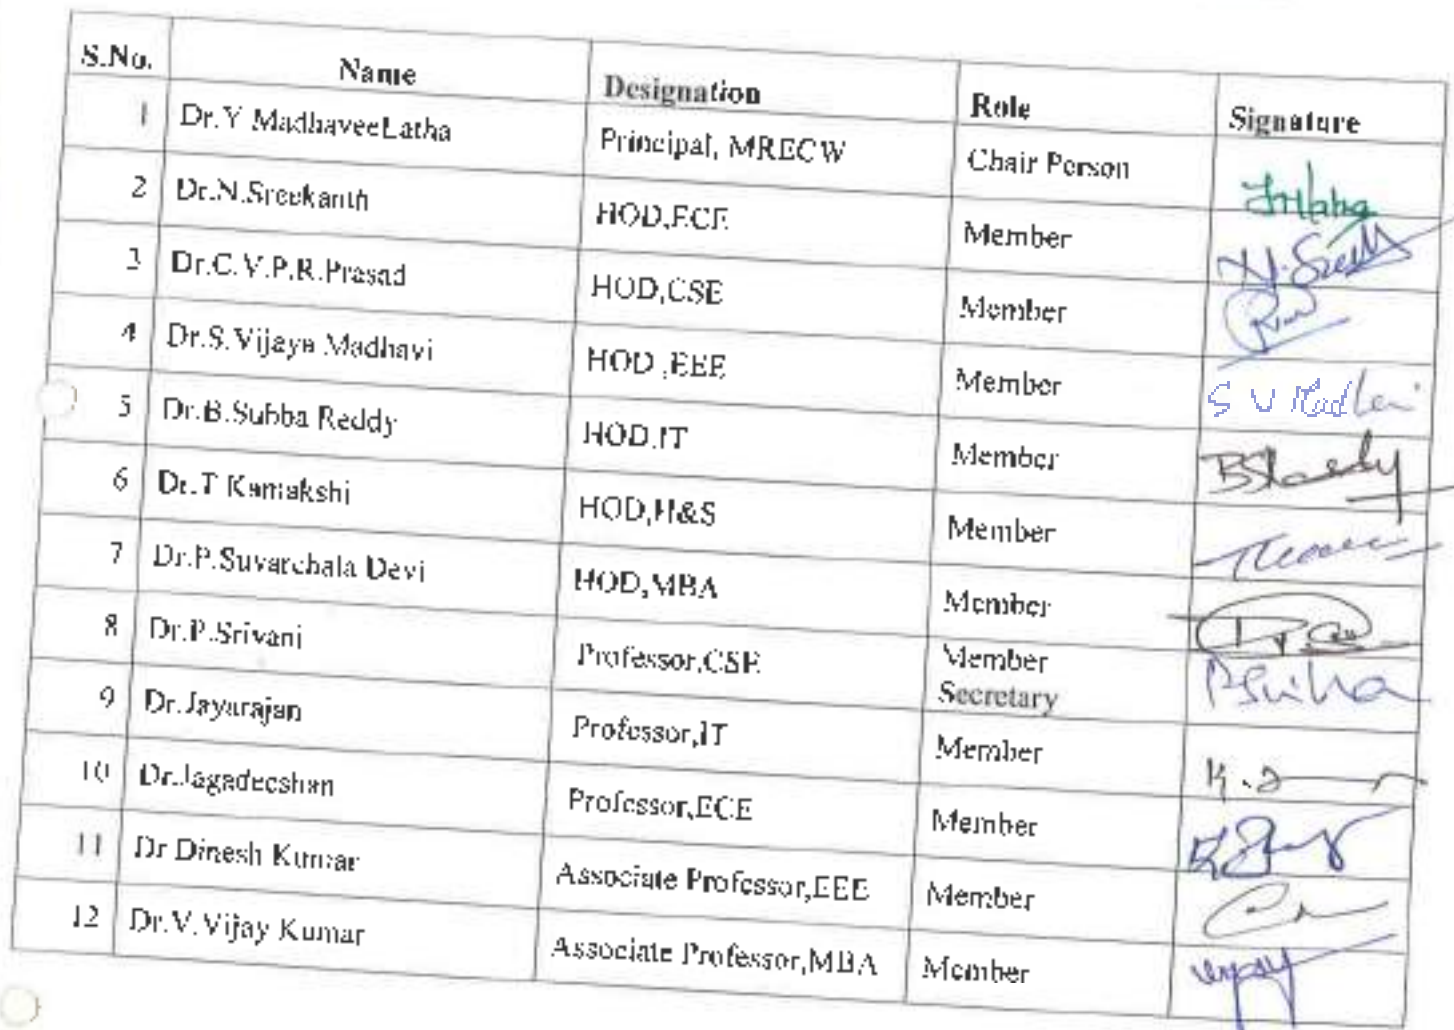 S.No. Name Designation Role Signature
1 Dr.Y MadhaveeLatha Principal, MRECW Chair Person
2 Dr.N.Sreekanth HOD,ECE Member N.Sree
3 Dr.C.V.P.R.Prasad HOD,CSE Member
4 Dr.S.Vijaya Madhavi HOD ,EEE Member S V Madhavi
5 Dr.B.Subba Reddy HOD,IT Member
6 Dr.T Kamakshi HOD,H&S Member
7 Dr.P.Suvarchala Devi HOD,MBA Member
8 Dr.P.Srivani Professor,CSE Member
Secretary
9 Dr.Jayarajan Professor,IT Member
10 Dr.Jagadeeshan Professor,ECE Member
11 Dr Dinesh Kumar Associate Professor,EEE Member
12 Dr.V.Vijay Kumar Associate Professor,MBA Member